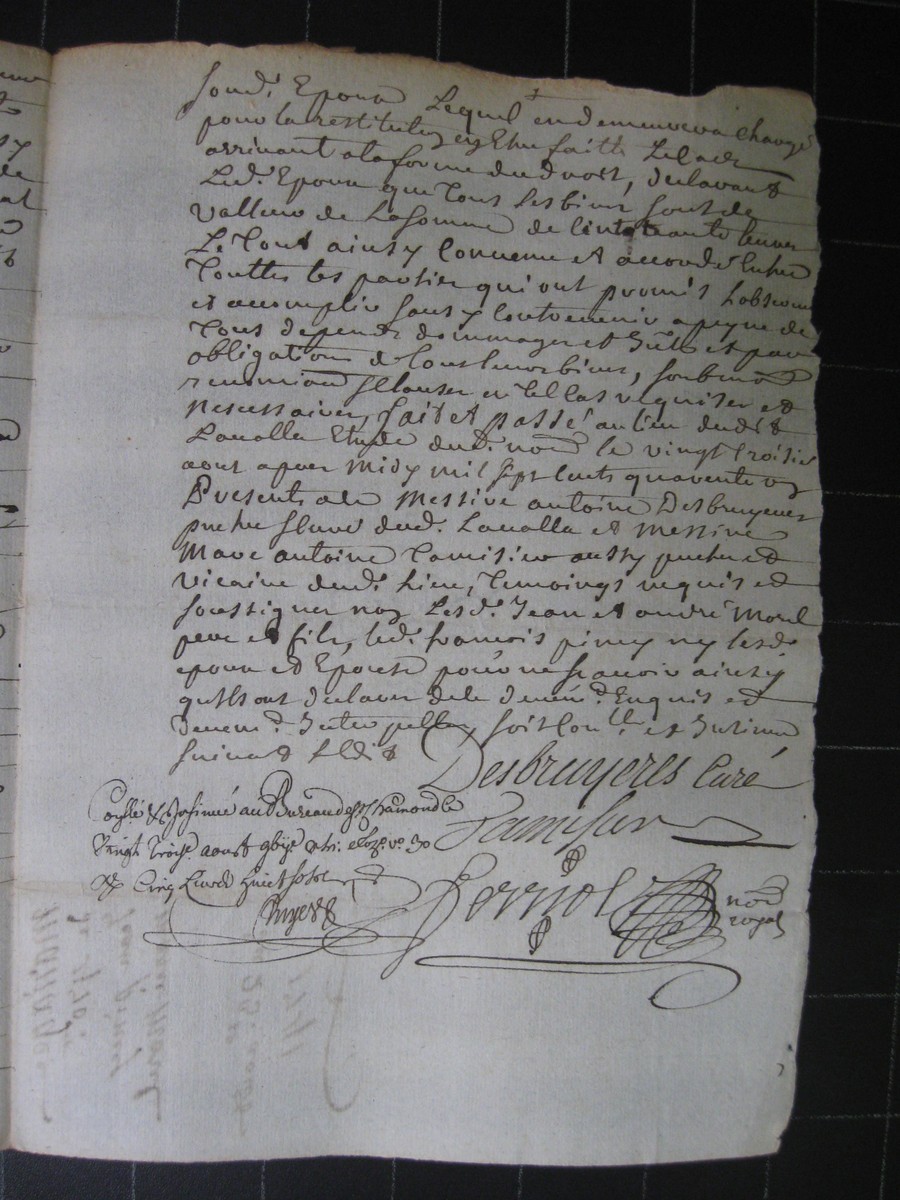 sond. Epoux Lequel en demeurera chargé
pour la restitution Estre faitte Le cas
arrivant a la forme du droit, declarant
Led. Epoux que tous ses biens sont de
valleur de La somme de cinquante livres
Le Tout ainsy convenu et accordé Entre
Touttes les parties qui ont promis Lobserver
et accomplir sans y contrevenir a peyne de
Tous depends dommages et Intts et par
obligation de tous leurs biens, soubmis
renoncia͠on Et clauses en tel cas requises et
nescessaires, fait et passé au lieu dudit
Lavalla Etude dud. no͠re le vingt troisie
aout apres midy mil sept cents quarente un
Presents a ce Messire antoine Desbruyeres
prestre Et curé dud. Lavalla et Messire
Marc antoine Tamisier aussy prestre et
vicaire dud. lieu, temoings requis et
soussignez non Lesd. Jean et andré Morel
pere et fils, led. francois piney ny lesd.
epoux et Epouse pour ne scavoir ainsy
quils ont declaré de ce deüem.t Enquis et
deuem.t Interpellez, soit con.llé et Insinué
suivant Ledit
Desbruyeres Curé
Conllé & Insinué au Bureau de St Chamond le
Tamisier
vingt troise aoust
R. Cinq Livres huict sols
ferriol no͠re
royal
1741
23e aoust
Mariage